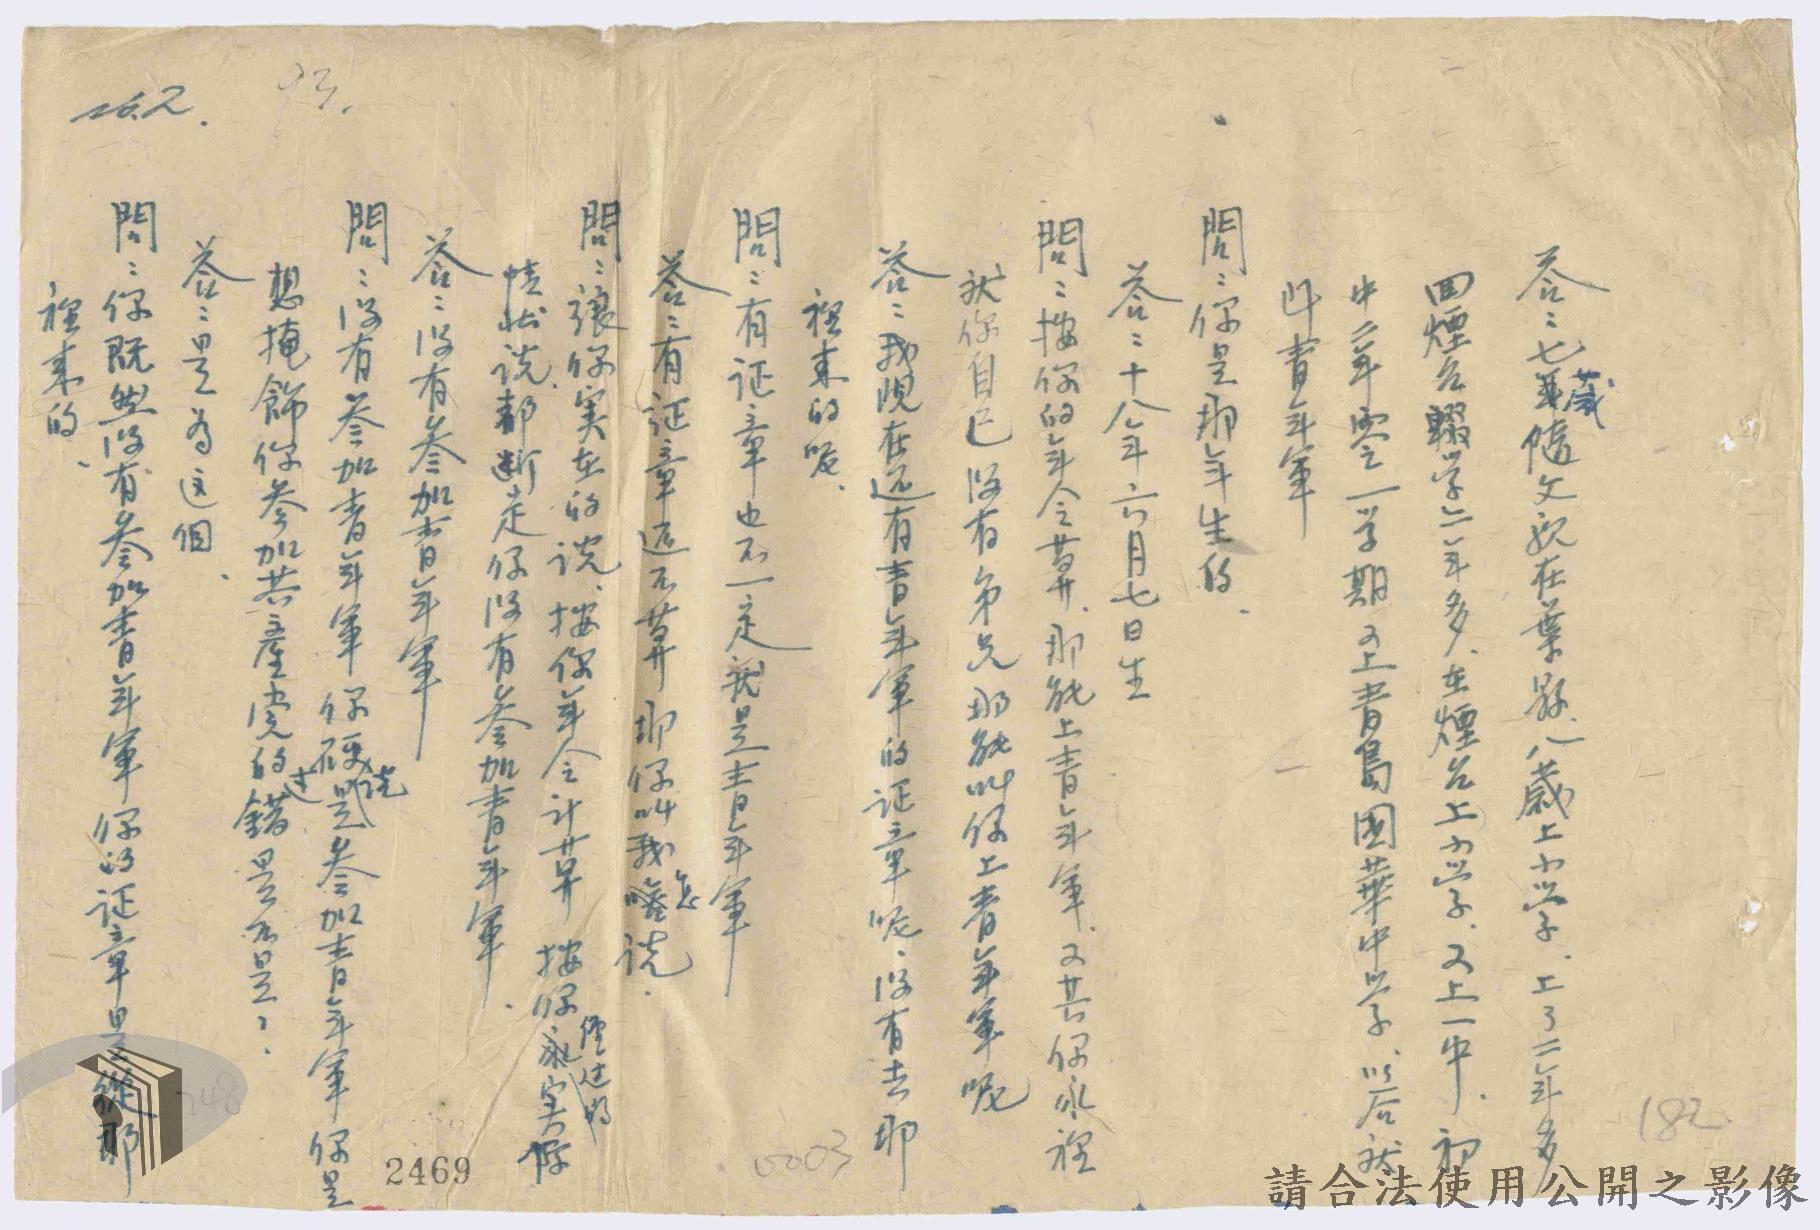 no.2.
93.
答：七歲隨父親在葉縣、八歲上小學、上了二年多
回煙台輟学二年多、在煙台上小学、又上一中、初
中二年零一学期又上青島國華中学、以后就
叫青年軍
問：你是那年生的、
答：十八年六月七日生
問：按你的年令算、那能上青年軍、又其你家裡
就你自己沒有弟兄那能叫你上青年軍呢
答：我現在还有青年軍的证章呢、沒有去那
裡来的呢、
問：有证章也不一定就是青年軍
答：有证章还不算那你叫我怎说、
問：讓你实在的说、按你年令计算按你經过的家实际
情状说、都断定你沒有参加青年軍、
答：沒有参加青年軍
問：沒有参加青年軍你硬说是参加青年軍你是
想掩飾你参加共產党的过錯是不是？
答：是为这個、
問：你既然沒有参加青年軍你的证章是從那
裡来的、
182
0003
2469
248
請合法使用公開之影像